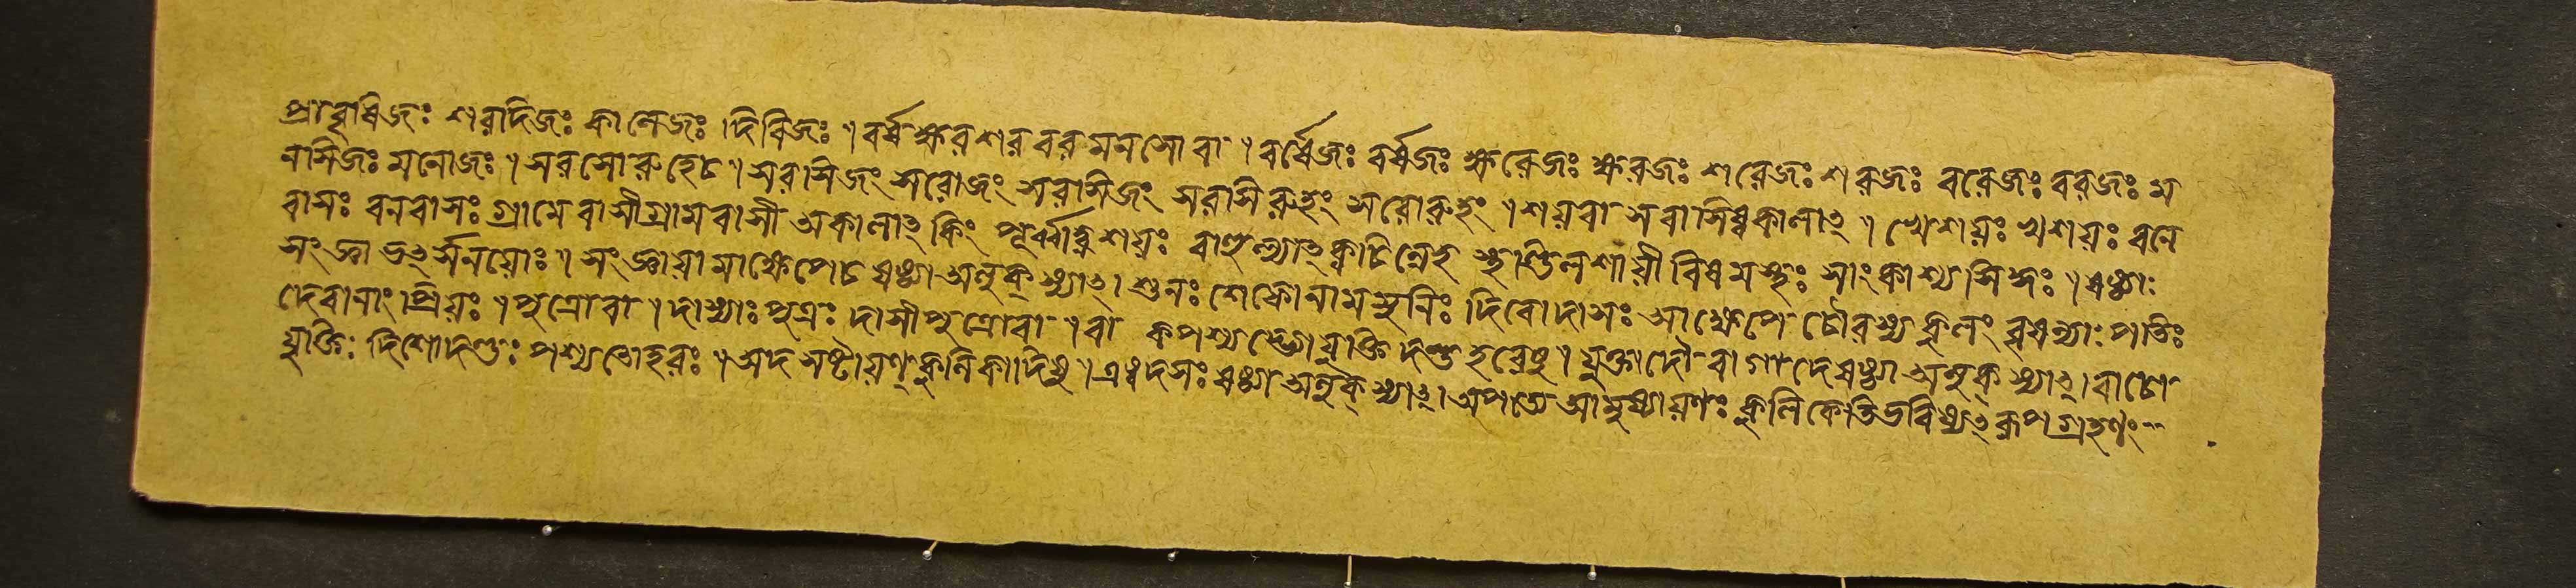 প্রাবৃষিজঃ শরদিজঃ কালেজঃ দিবিজঃ । বর্ষ ক্ষর শর বর মনসো বা । বর্ষেজঃ বর্ষজঃ ক্ষরেজঃ ক্ষরজঃ শরেজঃ শরজঃ বরেজঃ বরজঃ ম
নসিজঃ মনোজঃ । সরসোরুহেচ । সরসিজং সরোজং সরসিজং সরসিরুহং সরোরুহং । শয়বাসবাসিষ্বকালাৎ । খেশয়ঃ খশয়ঃ বনে
বাসঃ বনবাসঃ গ্রামেবাসী গ্রামবাসী অকালাৎ কিং পূর্ব্বাহ্ণশয়ঃ বাহুল্যাৎ ক্বচিন্নেহ স্থণ্ডিলশায়ী বিষমস্থঃ সাংকাশ্যসিদ্ধঃ । ষষ্ঠ্যাঃ
সংজ্ঞা ভর্ৎসনয়োঃ । সংজ্ঞায়ামাক্ষেপেচ ষষ্ঠ্যা অলুক্ স্যাৎ । শুনঃ শেফোনাম মুনিঃ দিবোদাসঃ আক্ষেপে চৌরস্য কুলং বৃষল্যাঃ পতিঃ
দেবানাং প্রিয়ঃ । পুত্রে বা । দাস্যাঃ পুত্রঃ দাসীপুত্রো বা । বাক পশ্যদ্ভ্যো যুক্তি দণ্ড হরেষু । যুক্ত্যাদৌ বাগাদে ষষ্ঠ্যা অলুক্ স্যাৎ । বাচো
যুক্তিঃ দিশোদণ্ডঃ পশ্যতোহরঃ । অদসষ্টায়ণ্ কুলিকাদিষু । এষ্বদসঃ ষষ্ঠ্যা অলুক্ স্যাৎ । অপত্যে আমুষ্যায়ণঃ কুলিকেতিভবিষ্যৎ রূপগ্রহণং